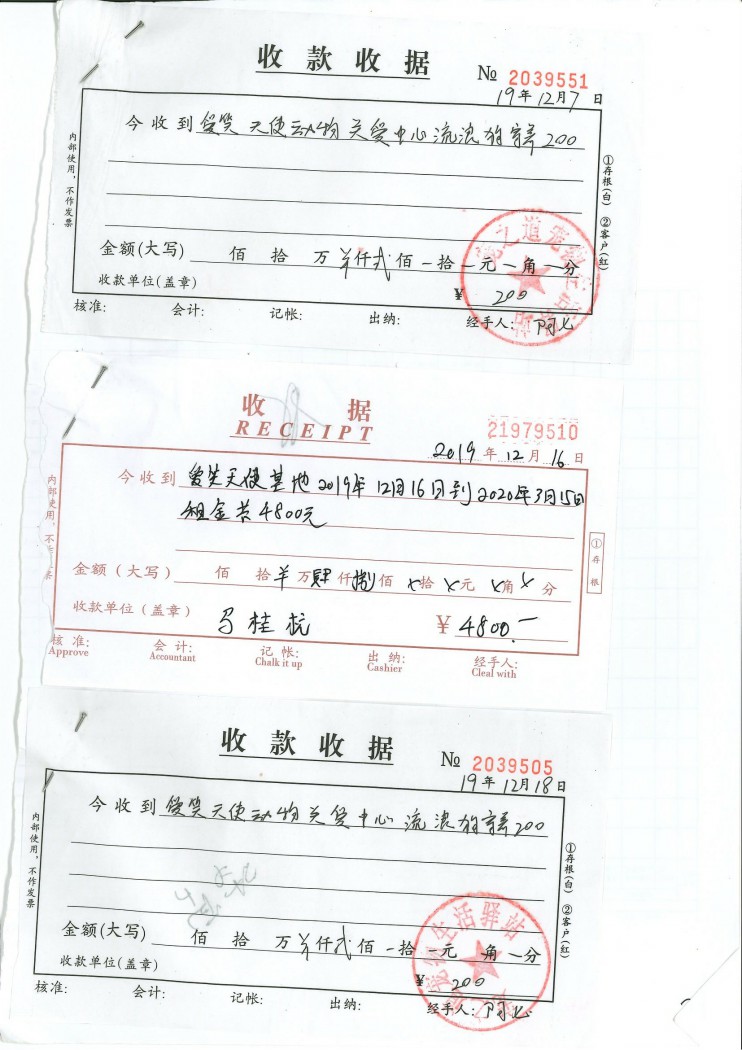 收款收据
№ 2039551
19年12月7日
今收到 爱笑天使动物关爱中心流浪狗寄养200
金额(大写) 佰 拾 万 仟贰佰 拾 元 角 分
收款单位(盖章) ¥ 200
核准: 会计: 记帐: 出纳: 经手人:
内部使用,不作发票
①存根(白) ②客户(红)
收据
RECEIPT
21979510
2019年12月16日
今收到 爱笑天使基地2019年12月16日到2020年3月15日
租金共4800元
金额(大写) 佰 拾 万肆仟捌佰 拾 元 角 分
收款单位(盖章) 马桂 ¥ 4800.一
核准: 会计: 记帐: 出纳: 经手人:
Approve Accountant Chalk it up Cashier Cleal with
内部使用,不
①存根
收款收据
№ 2039505
19年12月18日
今收到 爱笑天使动物关爱中心流浪狗寄养200
金额(大写) 佰 拾 万 仟贰佰 拾 元 角 分
收款单位(盖章) ¥ 200
核准: 会计: 记帐: 出纳: 经手人:
内部使用,不作发票
①存根(白) ②客户(红)
生活驿站